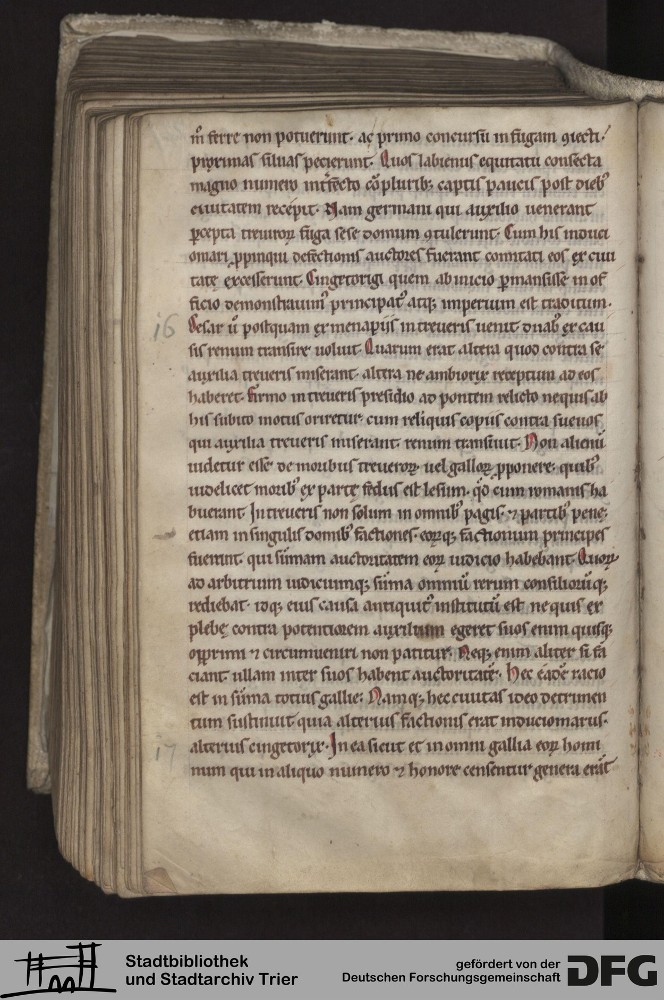 m̄ ferre non potuerunt. ac primo concursu in fugam ꝯiecti.
proximas siluas pecierunt. Quos labienus equitatu consecta
magno numero int̄fecto cōplurib; captis paucis post dieb᷒
ciuitatem recepit. Nam germani qui auxilio uenerant
ꝑcepta treuiroꝝ fuga sese domum ꝯtulerunt. Cum his induci
omari ꝓpinqui defectionis auctores fuerant comitati eos ex ciui
tate excesserunt. Cingetorigi quem ab inicio ꝑmansisse in of
ficio demonstrauim᷒ principat᷒ atq; imperium est traditum.
16 Cesar ū postquam ex menapiis in treueris uenit duab᷒ ex cau
sis renum transire uoluit. Quarum erat altera quod contra se
auxilia treueris miserant. altera ne ambiorix receptum ad eos
haberet. firmo in treueris presidio ad pontem relicto ne quis ab
his subito motus oriretur. cum reliquis copiis contra sueuos
qui auxilia treueris miserant renum transiuit. Non alienū
uidetur esse de moribus treueroꝝ. uel galloꝝ ꝓponere. quib᷒
uidelicet morib᷒ ex parte fedus est lesum. qd̄ cum romanis ha
buerant. In treueris non solum in omnib᷒ pagis. ⁊ partib᷒ pene;
etiam in singulis domib᷒ factiones. eorq; factionum principes
fuerunt. qui sūmam auctoritatem eoꝝ iudicio habebant. Quoꝝ
ad arbitrium iudiciumq; sūma omniū rerum consilioꝝ q;
rediebat. idq; eius causa antiquit᷒ institutū est. ne quis ex
plebe contra potentiorem auxilium egeret suos enim quisq;
opprimi ⁊ circumueniri non patitur. Neq; enim aliter si fa
ciant ullam inter suos habent auctoritatē. Hec eadē racio
est in sūma totius gallie. Namq; hec ciuitas ideo detrimen
tum sustinuit quia alterius factionis erat induciomarus.
alterius cingetorix. In ea sicut et in omni gallia eoꝝ homi
17 num qui in aliquo numero ⁊ honore censentur genera erāt
Stadtbibliothek
und Stadtarchiv Trier
gefördert von der
Deutschen Forschungsgemeinschaft
DFG